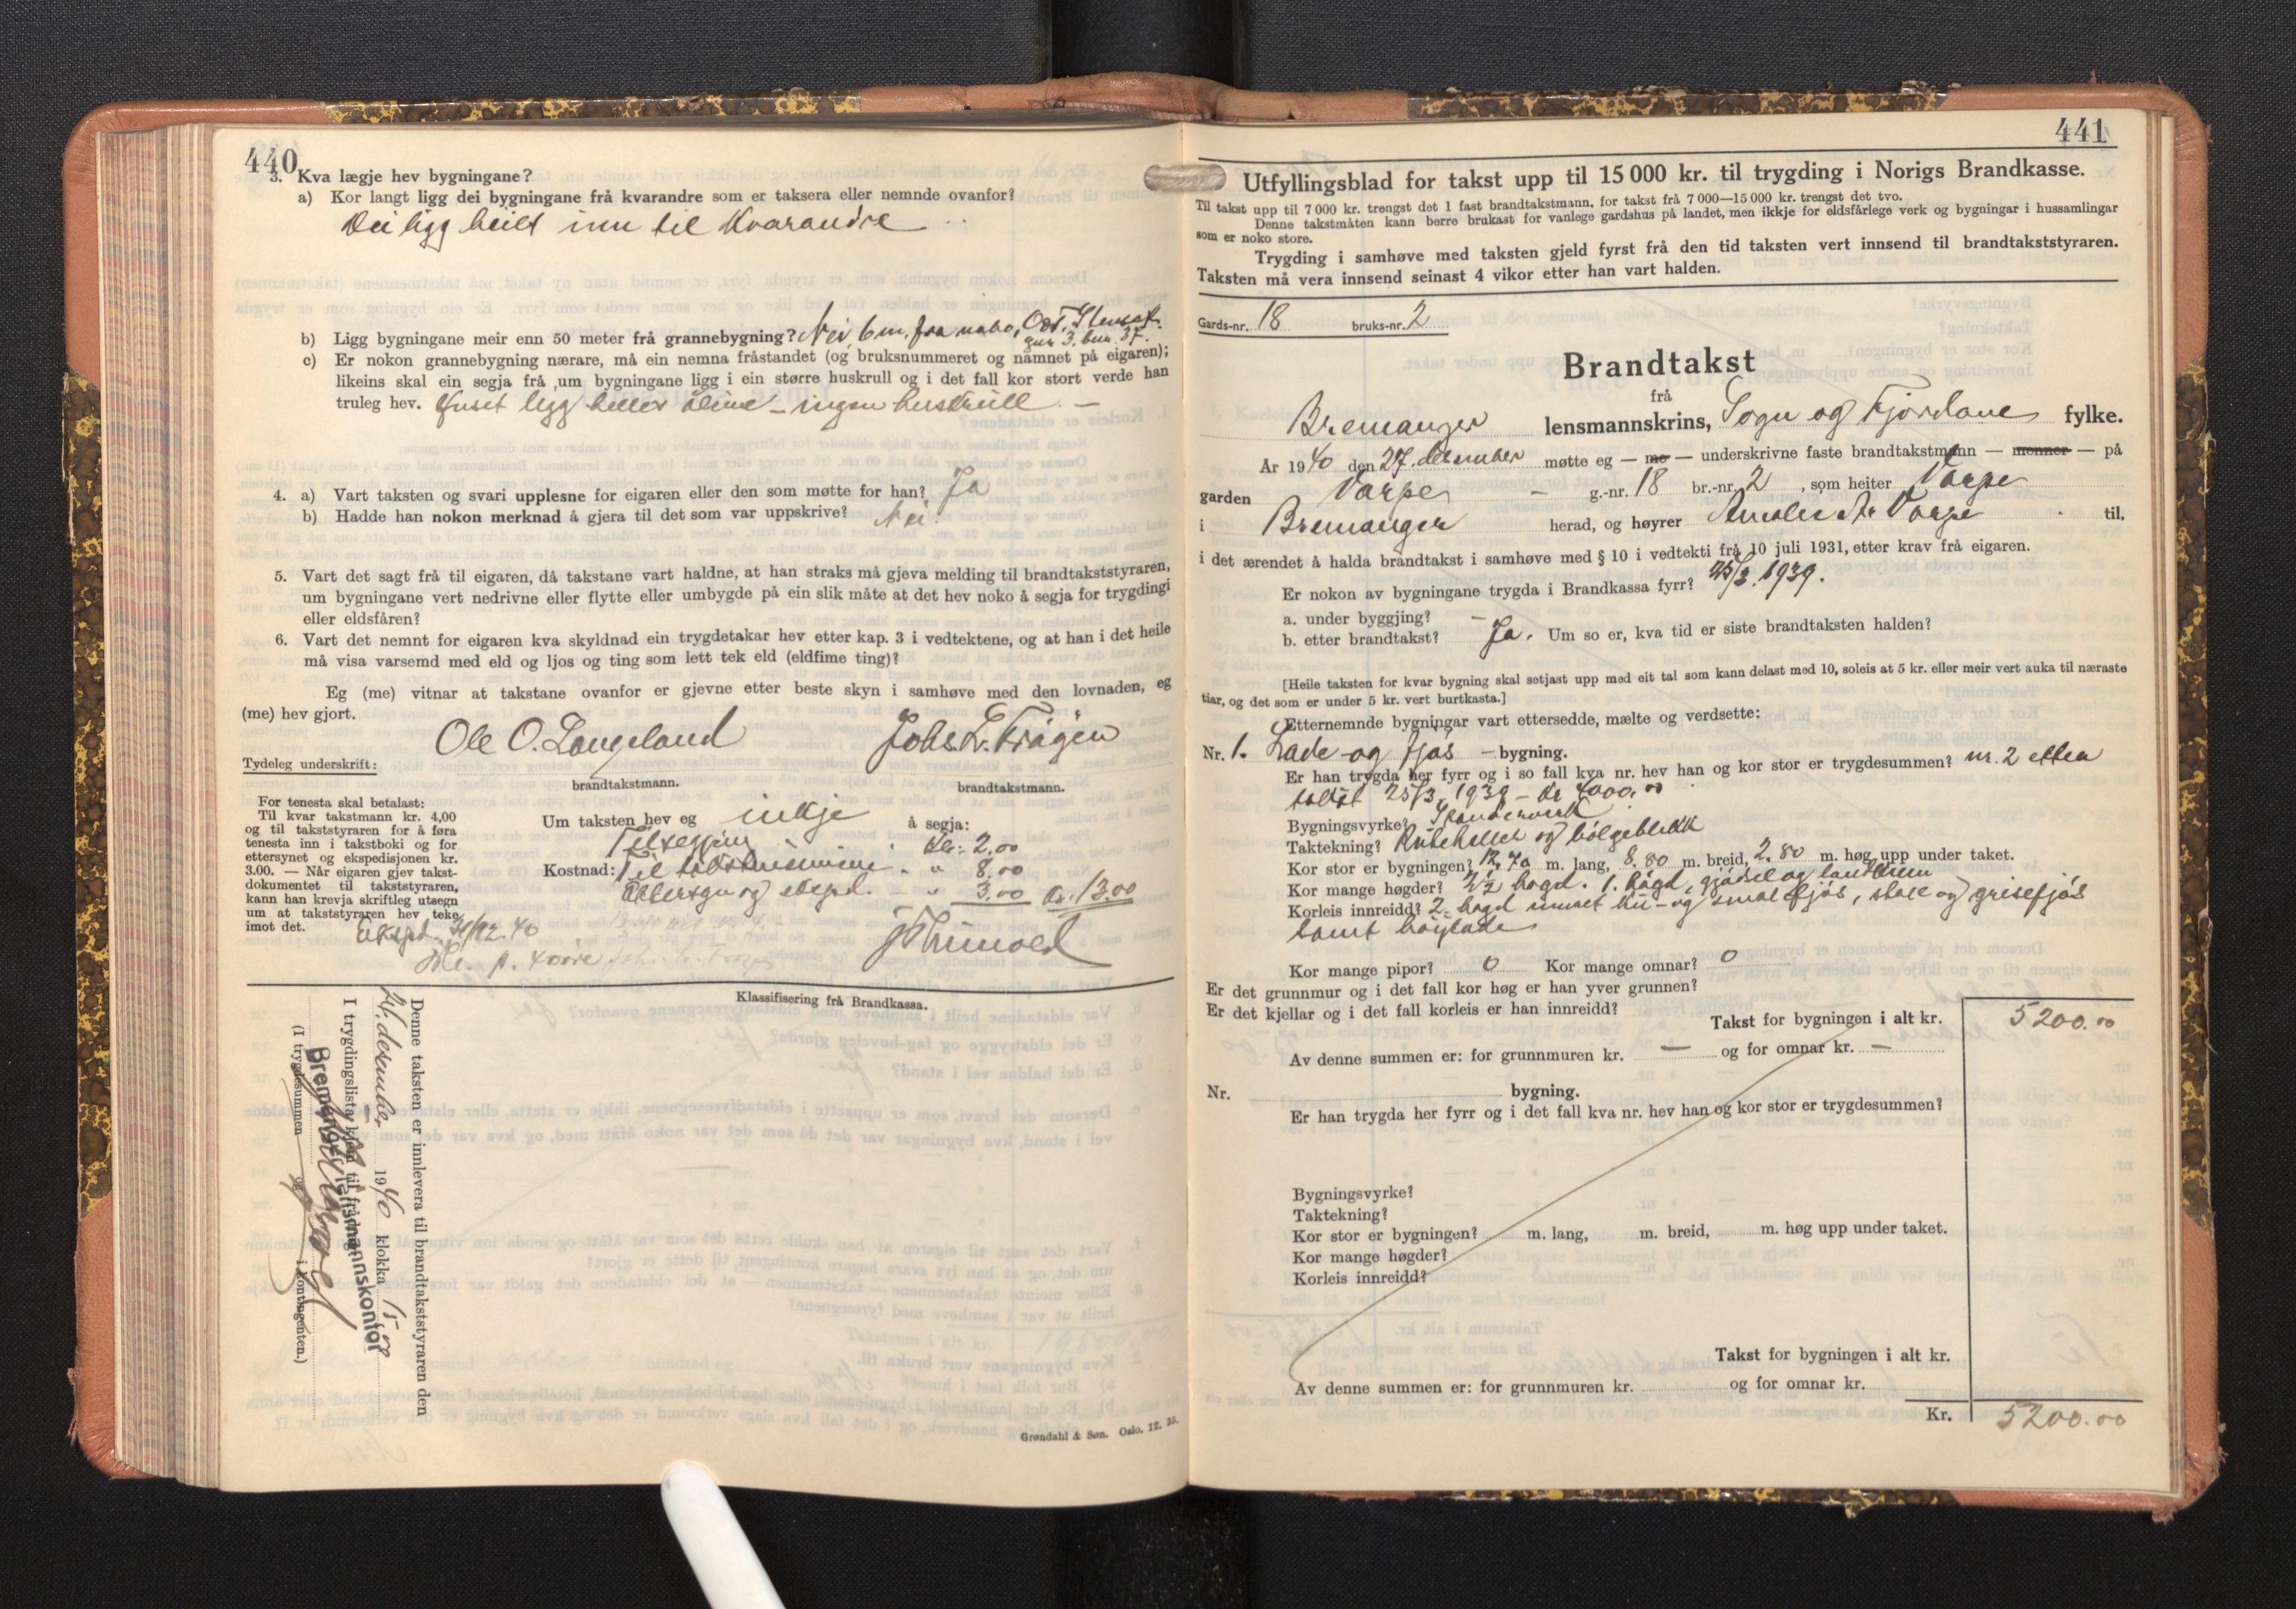 440
3. Kva lægje hev bygningane?
a) Kor langt ligg dei bygningane frå kvarandre som er taksera eller nemnde ovanfor?
Dei ligg heilt inn til kvarandre
b) Ligg bygningane meir enn 50 meter frå grannebygning? Nei, 6 m. fra nabo,
gnr. 3. bnr. 37.
c) Er nokon grannebygning nærare, må ein nemna fråstandet (og bruksnummeret og namnet på eigaren);
likeins skal ein segja frå um bygningane ligg i ein større huskrull og i det fall kor stort verde han
truleg hev. Huset ligg heller åleine – ingen huskrull. –
4. a) Vart taksten og svari upplesne for eigaren eller den som møtte for han? Ja
b) Hadde han nokon merknad å gjera til det som var uppskrive? Nei.
5. Vart det sagt frå til eigaren, då takstane vart haldne, at han straks må gjeva melding til brandtakststyraren,
um bygningane vert nedrivne eller flytte eller umbygde på ein slik måte at det hev noko å segja for trygdingi
eller eldsfåren?
6. Vart det nemnt for eigaren kva skyldnad ein trygdetakar hev etter kap. 3 i vedtektene, og at han i det heile
må visa varsemd med eld og ljos og ting som lett tek eld (eldfime ting)?
Eg (me) vitnar at takstane ovanfor er gjevne etter beste skyn i samhøve med den lovnaden, eg
(me) hev gjort.
Ole O. Langeland
Tydeleg underskrift:
brandtakstmann. brandtakstmann.
For tenesta skal betalast:
Til kvar takstmann kr. 4,00
og til takststyraren for å føra
tenesta inn i takstboki og for
ettersynet og ekspedisjonen kr.
3.00. — Når eigaren gjev takst-
dokumentet til takststyraren,
kann han krevja skriftleg utsegn
um at takststyraren hev teke
imot det.
Um taksten hev eg inkje å segja:
kr. 2.00
Kostnad: Til takstmennene - " 8.00
Ettersyn og eksped. - " 3.00 kr. 13.00
Eksped. 31/12.40
Klassifisering frå Brandkassa.
Denne taksten er innlevera til brandtakststyraren den
31. desember 1940 klokka 15.00
I trygdingslista
Bremanger lensmannskontor
(I trygdesummen og i kontingenten.)
Grøndahl & Søn. Oslo. 12. 35.
441
Utfyllingsblad for takst upp til 15 000 kr. til trygding i Norigs Brandkasse.
Til takst upp til 7 000 kr. trengst det 1 fast brandtakstmann, for takst frå 7 000—15 000 kr. trengst det tvo.
Denne takstmåten kann berre brukast for vanlege gardshus på landet, men ikkje for eldsfårlege verk og bygningar i hussamlingar
som er noko store.
Trygding i samhøve med taksten gjeld fyrst frå den tid taksten vert innsend til brandtakststyraren.
Taksten må vera innsend seinast 4 vikor etter han vart halden.
Gards-nr. 18 bruks-nr. 2
Brandtakst
frå
Bremanger lensmannskrins, Sogn og Fjordane fylke.
År 1940 den 27. desember møtte eg — me — underskrivne faste brandtakstmann — menner — på
garden Varpe – g.-nr. 18 br.-nr. 2, som heiter Varpe
i Bremanger herad, og høyrer Varpe til,
i det ærendet å halda brandtakst i samhøve med § 10 i vedtekti frå 10 juli 1931, etter krav frå eigaren.
Er nokon av bygningane trygda i Brandkassa fyrr? 25/3. 1939.
a. under byggjing? –
b. etter brandtakst? Ja. Um so er, kva tid er siste brandtaksten halden?
[Heile taksten for kvar bygning skal setjast upp med eit tal som kann delast med 10, soleis at 5 kr. eller meir vert auka til næraste
tiar, og det som er under 5 kr. vert burtkasta.]
Etternemnde bygningar vart ettersedde, mælte og verdsette:
Nr. 1. Løde og fjøs – bygning.
Er han trygda her fyrr og i so fall kva nr. hev han og kor stor er trygdesummen? nr. 2 etter
takst 25/3. 1939 – kr 4000.00
Bygningsvyrke? Standerverk
Taktekning? Rutehelle og bølgeblikk
Kor stor er bygningen? 12.70 m. lang, 8.80 m. breid, 2.80 m. høg upp under taket.
Kor mange høgder? 2½ høgd. 1. høgd, gjødsel og landkum
Korleis innreidd? 2. høgd innreit ku- og småfefjøs, stall og grisefjøs
samt høyløde
Kor mange pipor? 0 Kor mange omnar? 0
Er det grunnmur og i det fall kor høg er han yver grunnen?
Er det kjellar og i det fall korleis er han innreidd?
Takst for bygningen i alt kr. 5200.00
Av denne summen er: for grunnmuren kr. — og for omnar kr. —
Nr. bygning.
Er han trygda her fyrr og i det fall kva nr. hev han og kor stor er trygdesummen?
Bygningsvyrke?
Taktekning?
Kor stor er bygningen? m. lang, m. breid, m. høg upp under taket.
Kor mange høgder?
Korleis innreidd?
Takst for bygningen i alt kr.
Av denne summen er: for grunnmuren kr. og for omnar kr.
Kr. 5200.00